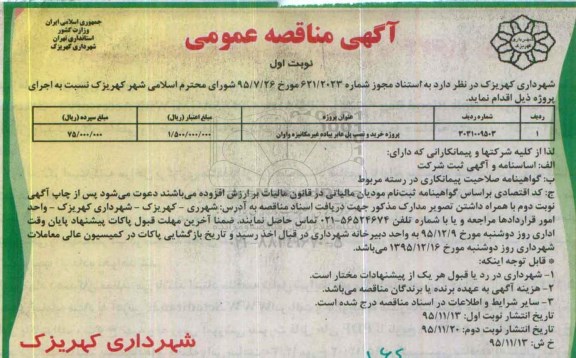 جمهوری اسلامی ایران
وزارت کشور
استانداری تهران
شهرداری کهریزک
آگهی مناقصه عمومی
نوبت اول
شهرداری کهریزک
شهرداری کهریزک در نظر دارد به استناد مجوز شماره ۶۲۱/۲۰۲۳ مورخ ۹۵/۷/۲۶ شورای محترم اسلامی شهر کهریزک نسبت به اجرای
پروژه ذیل اقدام نماید.
ردیف شماره ردیف عنوان پروژه مبلغ اعتبار (ریال) مبلغ سپرده (ریال)
۱ ۳۰۳۱۰۰۹۵۰۳ پروژه خرید و نصب پل عابر پیاده غیرمکانیزه واوان ۱/۵۰۰/۰۰۰/۰۰۰ ۷۵/۰۰۰/۰۰۰
لذا از کلیه شرکتها و پیمانکارانی که دارای:
الف: اساسنامه و آگهی ثبت شرکت
ب: گواهینامه صلاحیت پیمانکاری در رسته مربوط
ج: کد اقتصادی براساس گواهینامه ثبت‌نام مودیان مالیاتی در قانون مالیات بر ارزش افزوده می‌باشند دعوت می‌شود پس از چاپ آگهی
نوبت دوم با همراه داشتن تصویر مدارک مذکور جهت دریافت اسناد مناقصه به آدرس: شهرری - کهریزک - شهرداری کهریزک - واحد
امور قراردادها مراجعه و یا با شماره تلفن ۵۶۵۲۴۶۷۴-۰۲۱ تماس حاصل نمایند. ضمنا آخرین مهلت قبول پاکات پیشنهاد پایان وقت
اداری روز دوشنبه مورخ ۹۵/۱۲/۹ به واحد دبیرخانه شهرداری در قبال اخذ رسید و تاریخ بازگشایی پاکات در کمیسیون عالی معاملات
شهرداری روز دوشنبه مورخ ۱۳۹۵/۱۲/۱۶ می‌باشد.
* قابل توجه اینکه:
۱- شهرداری در رد یا قبول هر یک از پیشنهادات مختار است.
۲- هزینه آگهی به عهده برنده یا برندگان مناقصه می‌باشد.
۳- سایر شرایط و اطلاعات در اسناد مناقصه درج شده است.
تاریخ انتشار نوبت اول: ۹۵/۱۱/۱۳
تاریخ انتشار نوبت دوم: ۹۵/۱۱/۲۰
خ ش: ۹۵/۱۱/۱۳
شهرداری کهریزک